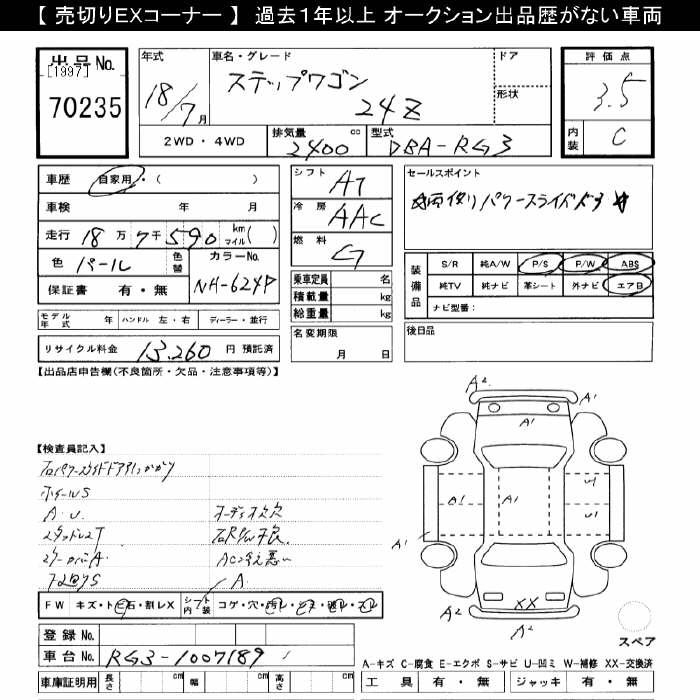 【 売切りEXコーナー 】 過去1年以上 オークション出品歴がない車両
出品No.
[1997]
70235
年式
18/7月
車名・グレード
ステップワゴン
24Z
ドア
形状
評価点
3.5
内装 C
2WD・4WD
排気量 2400 cc
型式 DBA-RG3
車歴 自家用・( )
車検 年 月
走行 18万7千590 km マイル( )
色 パール 色替
カラーNo. NH-624P
保証書 有・無
シフト AT
冷房 AAC
燃料 G
乗車定員 名
積載量 kg
総重量 kg
セールスポイント
パワースライドドア
装備品
S/R 純A/W P/S P/W ABS
純TV 純ナビ 革シート 外ナビ エアB
ナビ型番:
モデル年式 年 ハンドル 左・右 ディーラー・並行
名変期限 月 日
後日品
リサイクル料金 13,260 円 預託済
【出品店申告欄(不良箇所・欠品・注意事項等)】
【検査員記入】
ホイールS
A・U
オーディオ欠
スタッドレスT
AC冷え悪い
A
FW キズ・トビ石・割レX シート内装 コゲ・穴・
登録No.
車台No. RG3-1007189
車庫証明用 長さ cm 幅 cm 高さ cm
A2
A1
A1
A1
U1
U1
A1
XX
A2
A2
スペア
A-キズ C-腐食 E-エクボ S-サビ U-凹ミ W-補修 XX-交換済
工具 有・無 ジャッキ 有・無